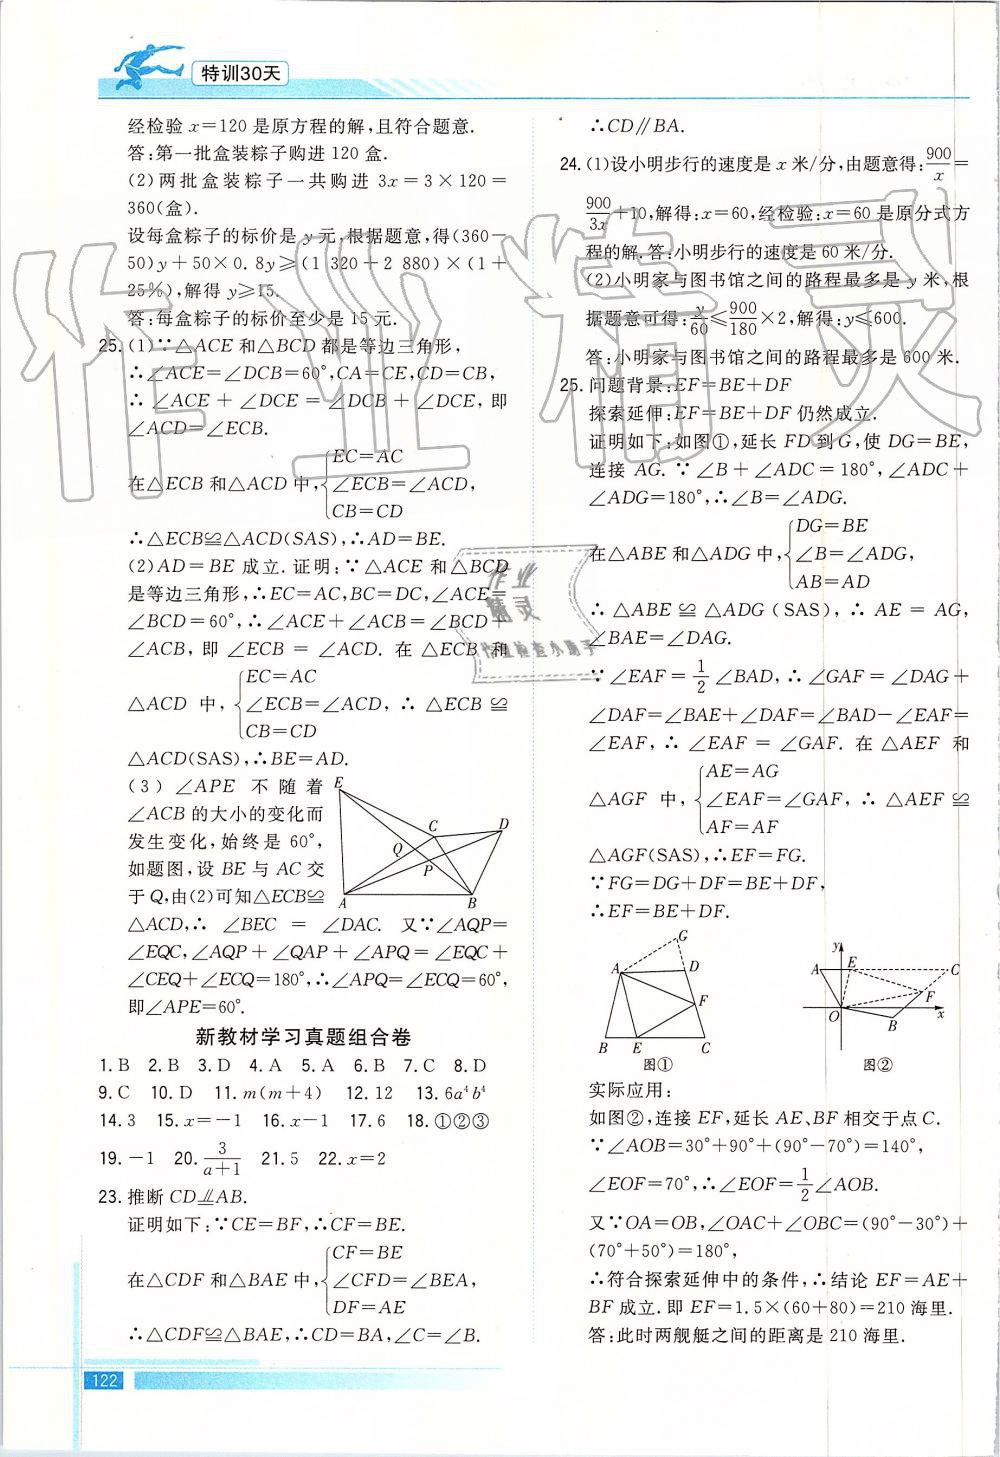 特训30天
经检验 x=120 是原方程的解,且符合题意.
答:第一批盒装粽子购进 120 盒.
(2)两批盒装粽子一共购进 3x=3×120=
360(盒).
设每盒粽子的标价是 y 元,根据题意,得(360-
50)y+50×0.8y≥(1 320+2 880)×(1+
25%),解得 y≥15.
答:每盒粽子的标价至少是 15 元.
25.(1)∵△ACE 和△BCD 都是等边三角形,
∴∠ACE=∠DCB=60°,CA=CE,CD=CB,
∴∠ACE+∠DCE=∠DCB+∠DCE,即
∠ACD=∠ECB.
在△ECB 和△ACD 中,{EC=AC
∠ECB=∠ACD,
CB=CD
∴△ECB≌△ACD(SAS),∴AD=BE.
(2)AD=BE 成立.证明:∵△ACE 和△BCD
是等边三角形,∴EC=AC,BC=DC,∠ACE=
∠BCD=60°,∴∠ACE+∠ACB=∠BCD+
∠ACB,即∠ECB=∠ACD.在△ECB 和
△ACD 中,{EC=AC
∠ECB=∠ACD,∴△ECB≌
CB=CD
△ACD(SAS),∴BE=AD.
(3)∠APE 不随着
∠ACB 的大小的变化而
发生变化,始终是 60°,
如题图,设 BE 与 AC 交
于 Q,由(2)可知△ECB≌
E
C
D
Q
P
A
B
△ACD,∴∠BEC=∠DAC.又∵∠AQP=
∠EQC,∠AQP+∠QAP+∠APQ=∠EQC+
∠CEQ+∠ECQ=180°,∴∠APQ=∠ECQ=60°,
即∠APE=60°.
新教材学习真题组合卷
1.B 2.B 3.D 4.A 5.A 6.B 7.C 8.D
9.C 10.D 11.m(m+4) 12.12 13.6a⁴b⁴
14.3 15.x=-1 16.x-1 17.6 18.①②③
19.-1 20.3/(a+1) 21.5 22.x=2
23.推断 CD∥AB.
证明如下:∵CE=BF,∴CF=BE.
在△CDF 和△BAE 中,{CF=BE
∠CFD=∠BEA,
DF=AE
∴△CDF≌△BAE,∴CD=BA,∠C=∠B.
122
∴CD∥BA.
24.(1)设小明步行的速度是 x 米/分,由题意得:900/x=
900/3x+10,解得:x=60,经检验:x=60 是原分式方
程的解.答:小明步行的速度是 60 米/分.
(2)小明家与图书馆之间的路程最多是 y 米,根
据题意可得:y/60≤900/180×2,解得:y≤600.
答:小明家与图书馆之间的路程最多是 600 米.
25.问题背景:EF=BE+DF
探索延伸:EF=BE+DF 仍然成立.
证明如下:如图①,延长 FD 到 G,使 DG=BE,
连接 AG.∵∠B+∠ADC=180°,∠ADC+
∠ADG=180°,∴∠B=∠ADG.
在△ABE 和△ADG 中,{DG=BE
∠B=∠ADG,
AB=AD
∴△ABE≌△ADG(SAS),∴AE=AG,
∠BAE=∠DAG.
∵∠EAF=1/2∠BAD,∴∠GAF=∠DAG+
∠DAF=∠BAE+∠DAF=∠BAD-∠EAF=
∠EAF,∴∠EAF=∠GAF.在△AEF 和
△AGF 中,{AE=AG
∠EAF=∠GAF,∴△AEF≌
AF=AF
△AGF(SAS),∴EF=FG.
∵FG=DG+DF=BE+DF,
∴EF=BE+DF.
G
A
D
F
B
E
C
图①
y
A
E
C
F
O
B
x
图②
实际应用:
如图②,连接 EF,延长 AE、BF 相交于点 C.
∵∠AOB=30°+90°+(90°-70°)=140°,
∠EOF=70°,∴∠EOF=1/2∠AOB.
又∵OA=OB,∠OAC+∠OBC=(90°-30°)+
(70°+50°)=180°,
∴符合探索延伸中的条件,∴结论 EF=AE+
BF 成立.即 EF=1.5×(60+80)=210 海里.
答:此时两舰艇之间的距离是 210 海里.
作业精灵
作业
精灵
作业检查小助手